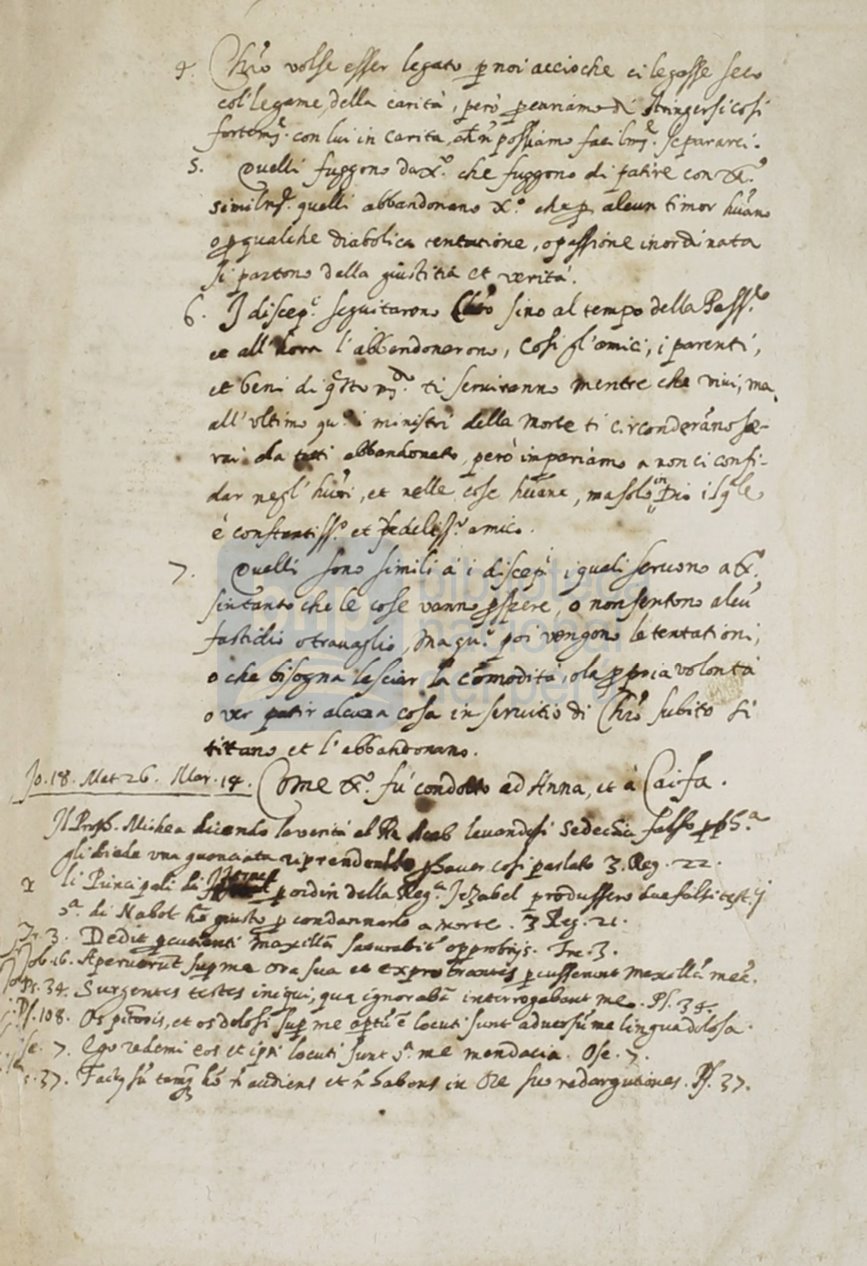 4. Chr̃o volse esser legato p noi accioche ci legasse seco
col' legame della carità, però pcuriamo di stringersi così
fortemẽ. con lui in carità, che ñ possiamo facilmẽ. separarci.
5. Quelli fuggono da X.º che fuggono di patire con X.º
similmẽ. quelli abbandonano X.º che p alcun timor hũano
o p qualche diabolica tentatione, o passione inordinata
si partono della giustitia et verità.
6. I discep.i seguitarono Chr̃o sino al tempo della Pass.e
et all'hora l'abbandonarono, così gl'amici, i parenti,
et beni di q̃sto mõ. ti serviranno mentre che vivi, ma
all'ultimo qũ. i ministri della morte ti circonderãno sa-
rai da tutti abbandonato, però impariamo a non ci confi-
dar negl'hũi, et nelle cose hũane, ma solo in Dio il q̃le
è constantiss.º et fedeliss.º amico.
7. Quelli sono simili à i discep.i i quali servono a X.º
sintanto che le cose vanno pspere, o non sentono alcũ
fastidio o travaglio, ma qũ. poi vengono le tentationi,
o che bisogna lasciar la cõmodità, o la ppria volontà
o ver patir alcuna cosa in servitio di Chr̃o subito si
titano et l'abbandonano.
Jo. 18. Mat 26. Mar. 14. Come X.º fu condotto ad Anna, et à Caifa.
Il Proph. Michea dicendo la verità al Re Acab levandosi Sedechia falso pph.a
gli diede una guanciata riprendendolo p haver così parlato 3. Reg. 22.
2 li Principali di p ordin della Reg.a Jezabel produssero dua falsi test.ij
di Nabot hõ giusto p condannarlo a morte. 3 Reg. 21.
Tr. 3. Dedit pcutienti maxillã saturabit.r opprobrijs. Tre. 3.
Job. 16. Aperuerũt sup me ora sua et exprobrantes pcusserunt maxillã meã.
Ps. 34. Surgentes testes iniqui, quæ ignorabã interrogabant me. Ps. 34.
Ps. 108. Os pctoris, et os dolosi sup me aptũ ẽ locuti sunt adversũ me lingua dolosa.
se. 7. Ego redemi eos et ipsi locuti sunt me mendacia. Ose. 7.
37. Factus sũ tamq̃ hõ ñ audiens et ñ habens in ore suo redargutiones. Ps. 37.